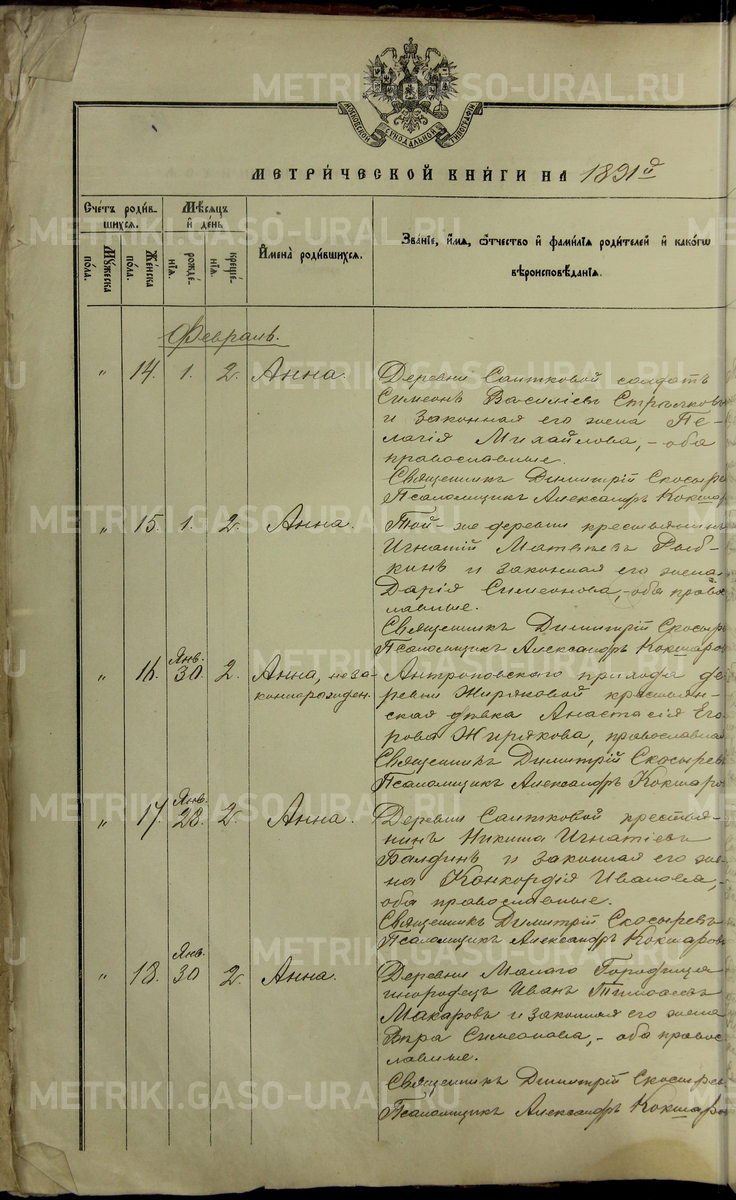 МОСКОВСКОЙ СѴНОДАЛЬНОЙ ТИПОГРАФІИ
МЕТРИ́ЧЕСКОЙ КНИ́ГИ НА 1891й
Сче́тъ роди́в-
шихся.
Мѣ́сяцъ
и́ де́нь
И́мена̀ роди́вшихся.
Зва́нїе, и́мя, ѻ҆́тчество и҆ фами́лїя роди́телей и҆ како́гѡ
вѣроисповѣ́данїя.
Му́жеска
по́ла.
Же́нска
по́ла.
рожде́-
нїя.
креще́-
нїя.
Февраль.
„ 14. 1. 2. Анна.
Деревни Саитковой солдатъ
Симеонъ Василіевъ
и законная его жена Пе-
лагія Михайлова, - оба
православные.
Священникъ Димитрій Скосыре
Псаломщикъ Александръ Кокшар
„ 15. 1. 2. Анна.
Той-же деревни крестьянинъ
Игнатій Матвѣевъ Рыб-
кинъ и законная его жена
Дарія Симеонова, - оба право
славные.
Священникъ Димитрій Скосыре
Псаломщикъ Александръ Кокшаров
„ 16. Янв. 30. 2. Анна, неза-
коннорожден.
Антроповскаго прихода де
ревни Жиряковой крестьян-
ская дѣвка Анастасія Его
рова Жирякова, православная
Священникъ Димитрій Скосыревъ
Псаломщикъ Александръ Кокшаро
„ 17. Янв. 28. 2. Анна.
Деревни Саитковой крестья-
нинъ Никита Игнатіевъ
Балдинъ и законная его же-
на Конкордія Иванова, -
оба православные.
Священникъ Димитрій Скосыревъ
Псаломщикъ Александръ Кокшаров
„ 18. Янв. 30 2. Анна.
Деревни Малаго Городища
инородецъ Иванъ Тимоѳеевъ
Макаровъ и законная его жена
Вѣра Симеонова, - оба правос
лавные.
Священникъ Димитрій Скосырев
Псаломщикъ Александръ Кокшаро
METRIKI.GASO-URAL.RU